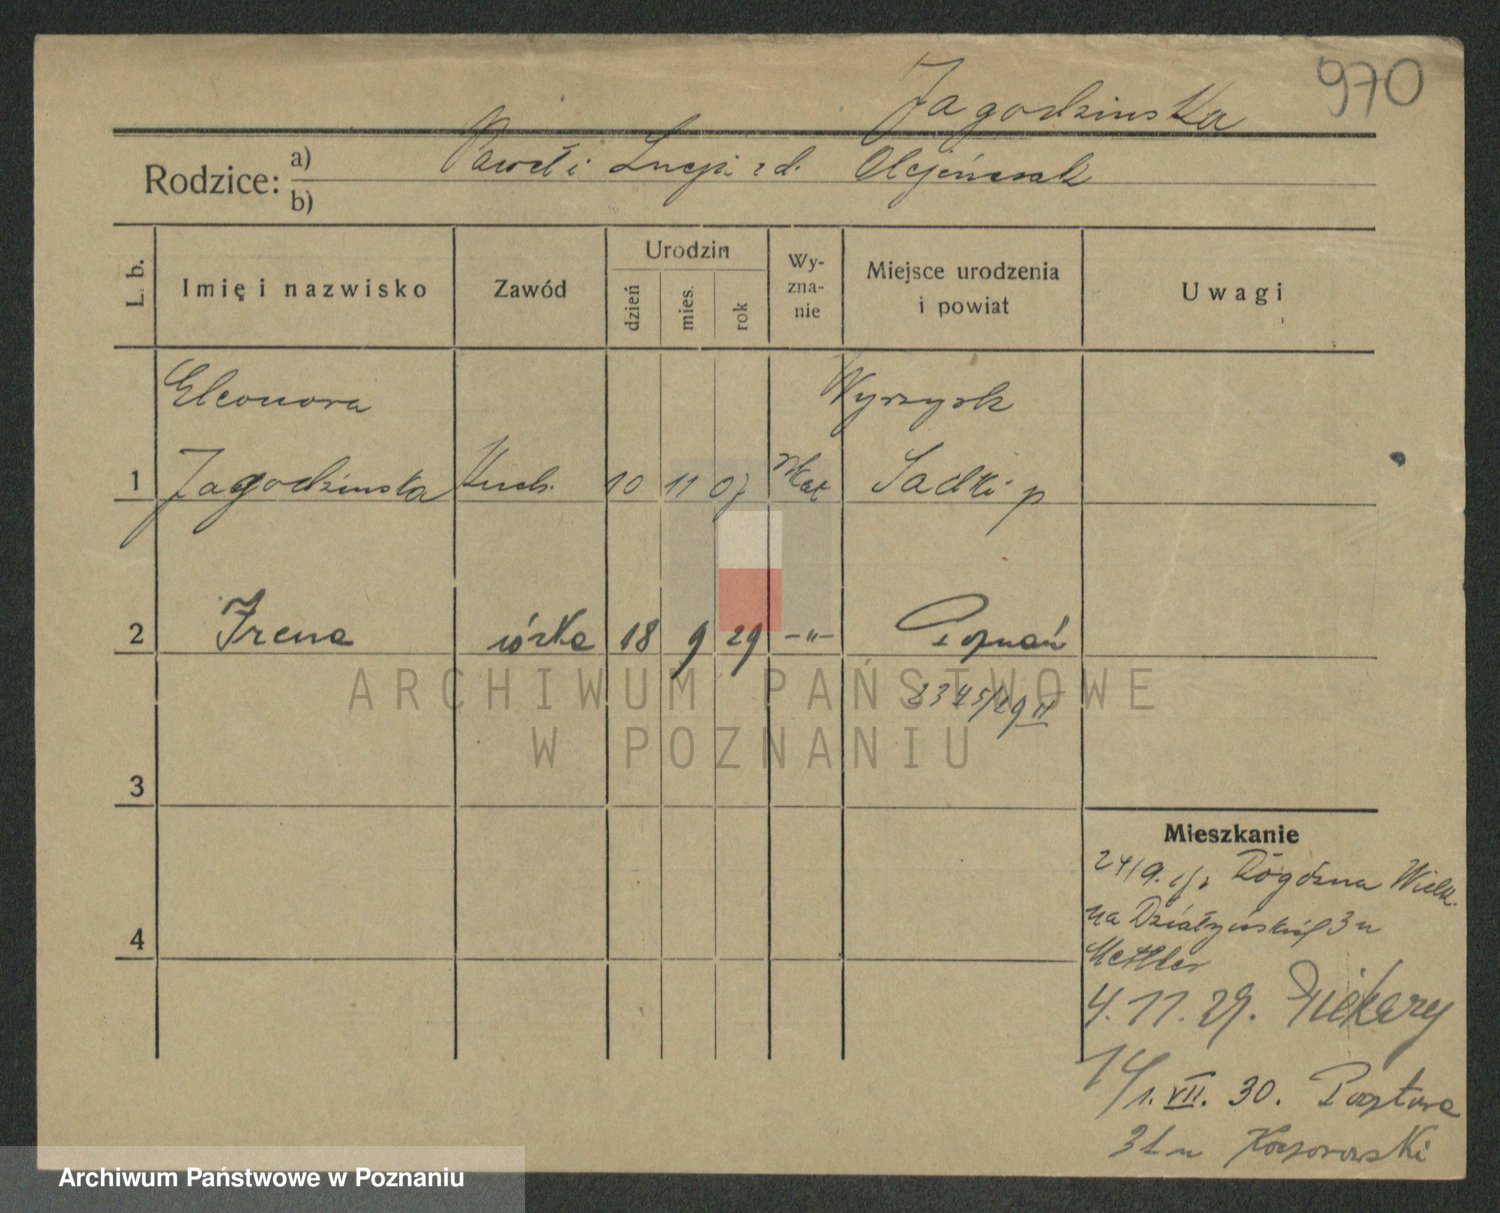 970
Jagodzinska
Rodzice: a) Paweł i Lucja z d. Olejniczak
b)
L. b.
Imię i nazwisko
Zawód
Urodzin
dzień
mies.
rok
Wy-
zna-
nie
Miejsce urodzenia
i powiat
Uwagi
Eleonora Wyrzysk
1 Jagodzinska Kuch. 10 11 07 Kat Sadki p
2 Irena córka 18 9 29 -"- Poznań
2345/29 II
3
4
Mieszkanie
24/9. Rogóźna Wielk.
na Działyńskich 3 u
4.11.29. Piekary
14/1. VII. 30. Pocztowa
31 u
ARCHIWUM PAŃSTWOWE
W POZNANIU
Archiwum Państwowe w Poznaniu